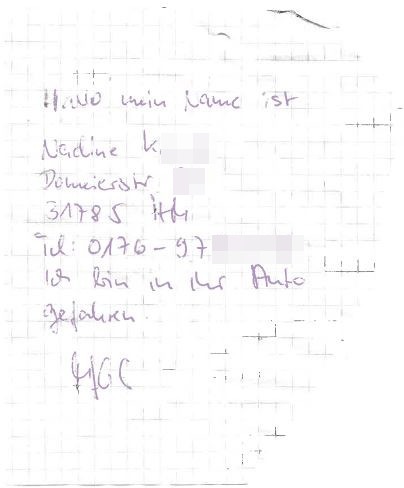 Hallo mein Name ist
Nadine K
Domeierstr.
31785 HM
Tel: 0176-97
Ich bin in ihr Auto
gefahren.